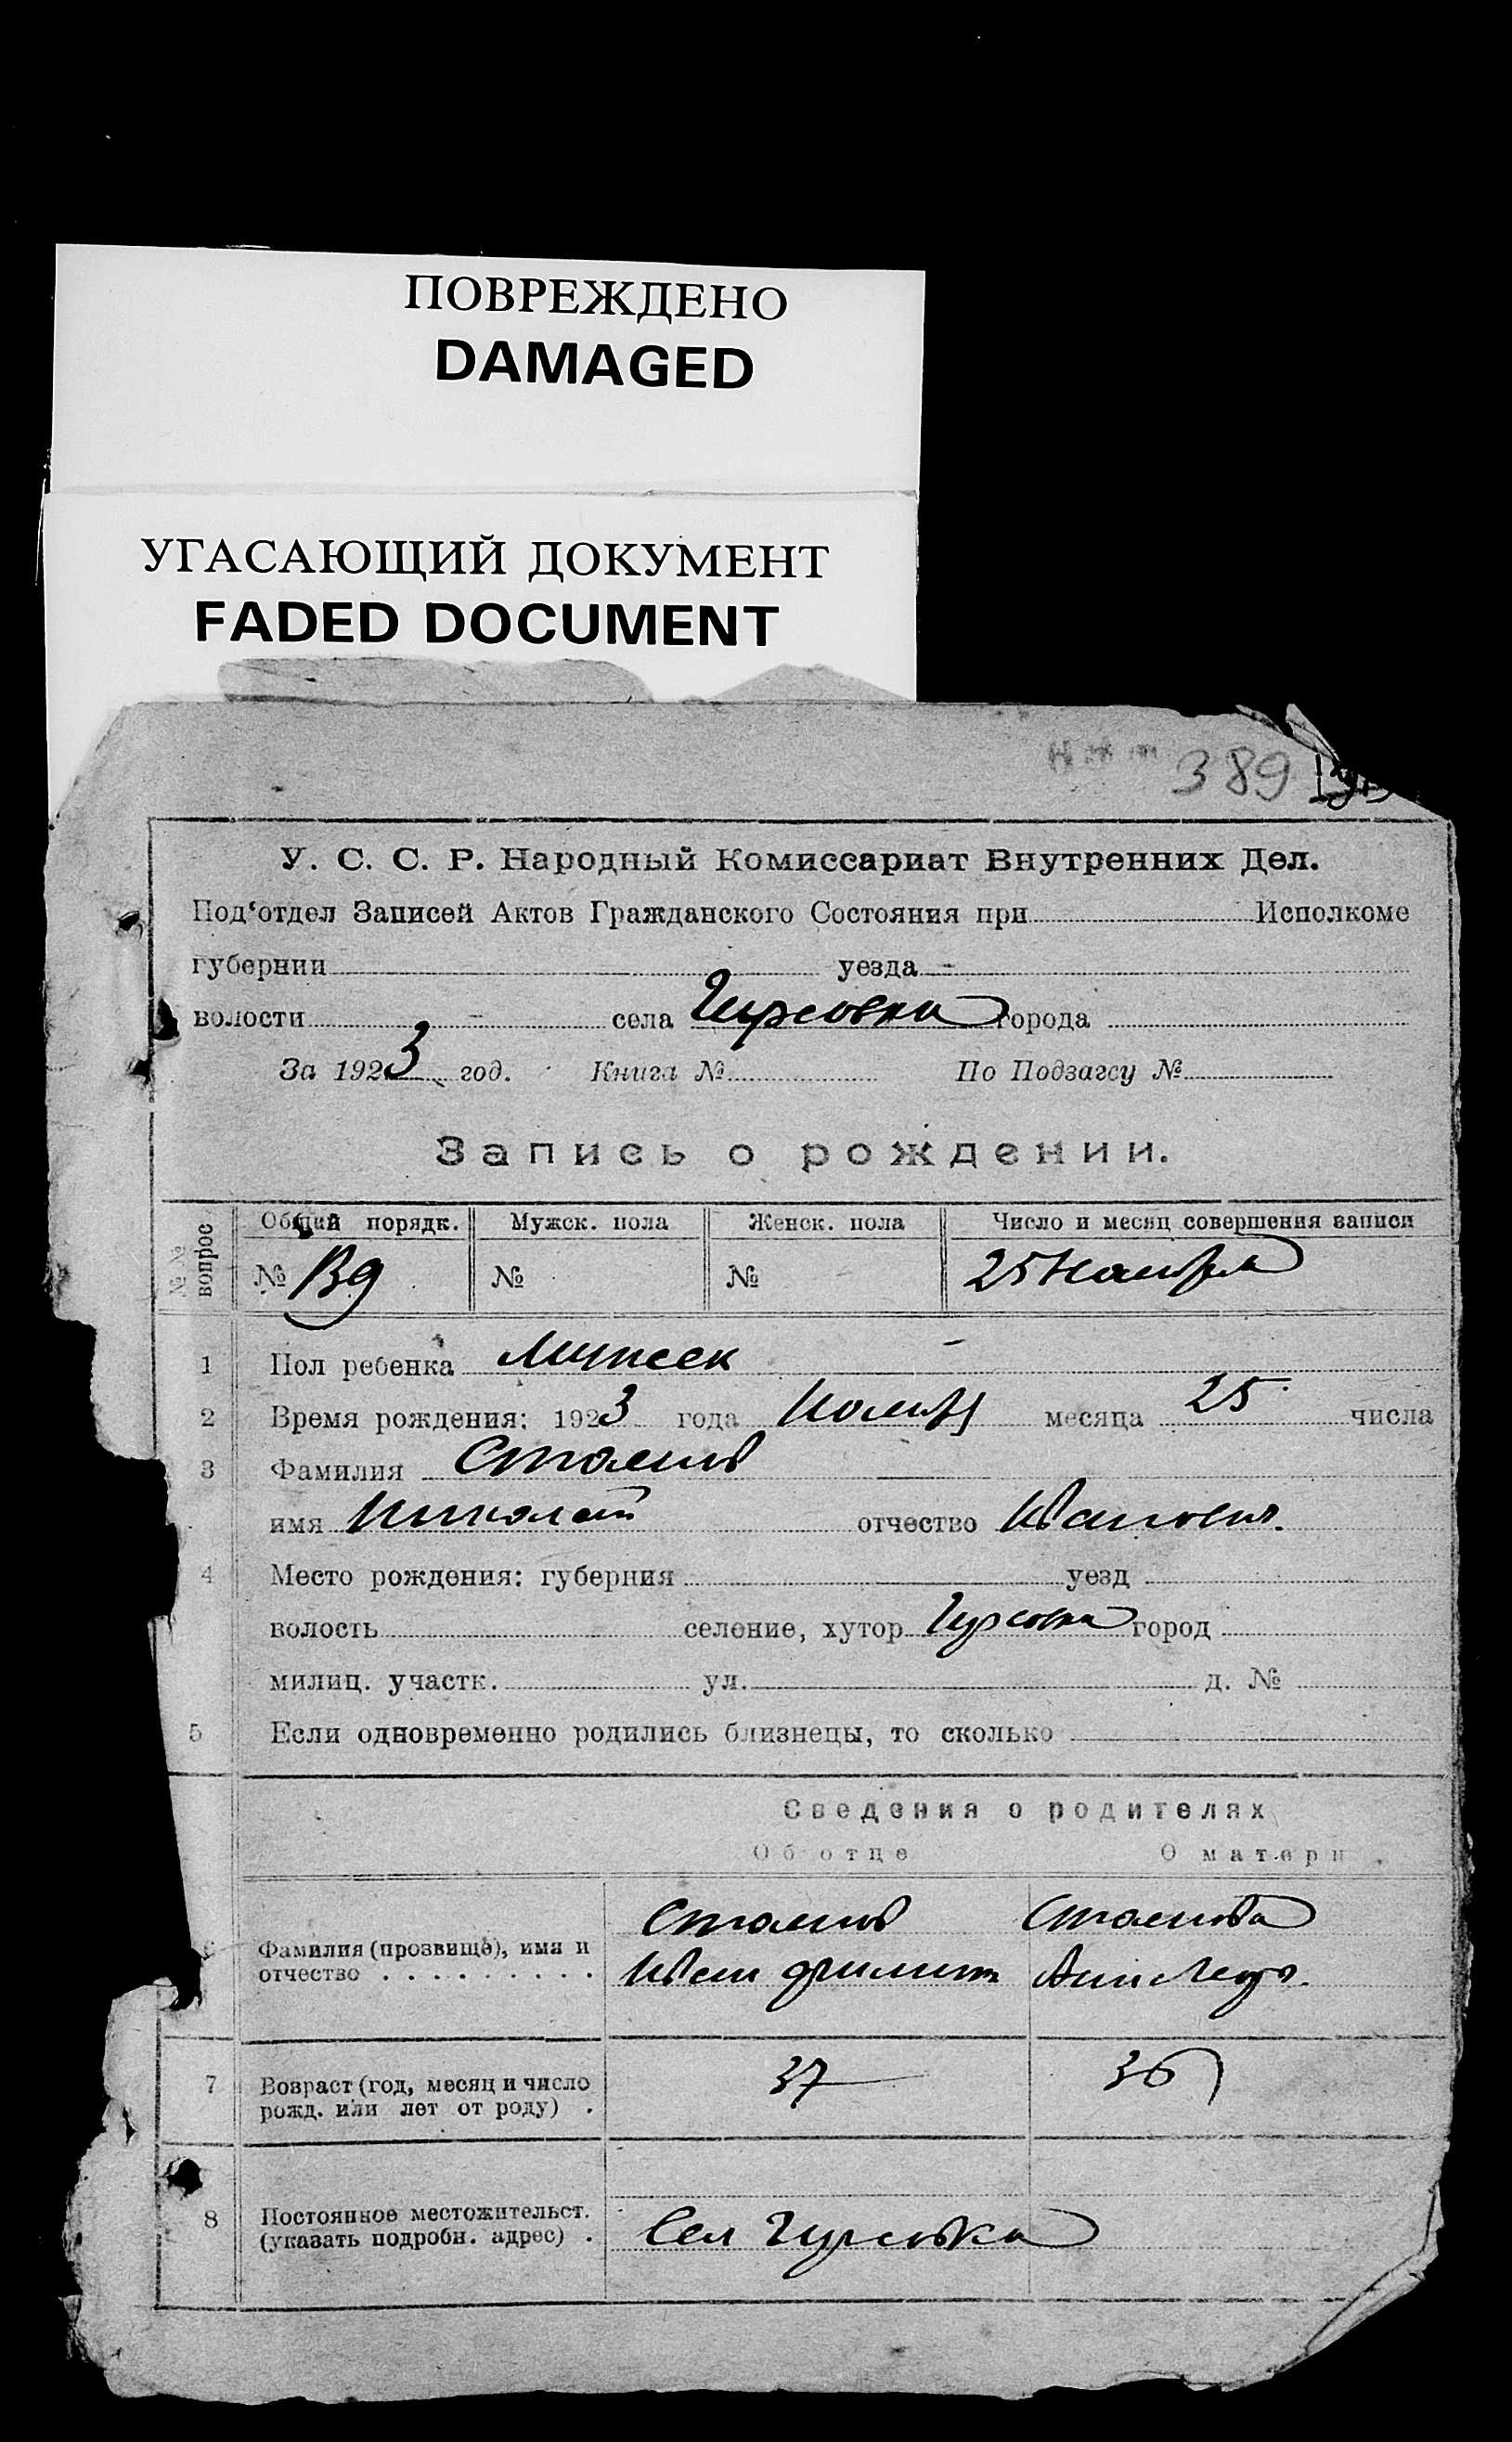 ПОВРЕЖДЕНО
DAMAGED
УГАСАЮЩИЙ ДОКУМЕНТ
FADED DOCUMENT
389
У. С. С. Р. Народный Комиссариат Внутренних Дел.
Под‘отдел Записей Актов Гражданского Состояния при Исполкоме
губернии уезда
волости села Гирсовка города
За 1923 год. Книга № По Подзагсу №
Запись о рождении.
№ № вопрос Общий порядк. Мужск. пола Женск. пола Число и месяц совершения записи
№ № № 25 Ноября
1 Пол ребенка Мужеск
2 Время рождения: 1923 года Ноября месяца 25 числа
3 Фамилия Стоянов
имя Николай отчество Иванович
4 Место рождения: губерния уезд
волость селение, хутор Гирсовка город
милиц. участк. ул. д. №
5 Если одновременно родились близнецы, то сколько
Сведения о родителях
Об отце О матери
Стоянов Стоянова
6 Фамилия (прозвище), имя и Иван Анна
отчество
37 36
7 Возраст (год, месяц и число
рожд. или лет от роду)
8 Постоянное местожительст. Сел Гирсовка
(указать подробн. адрес)